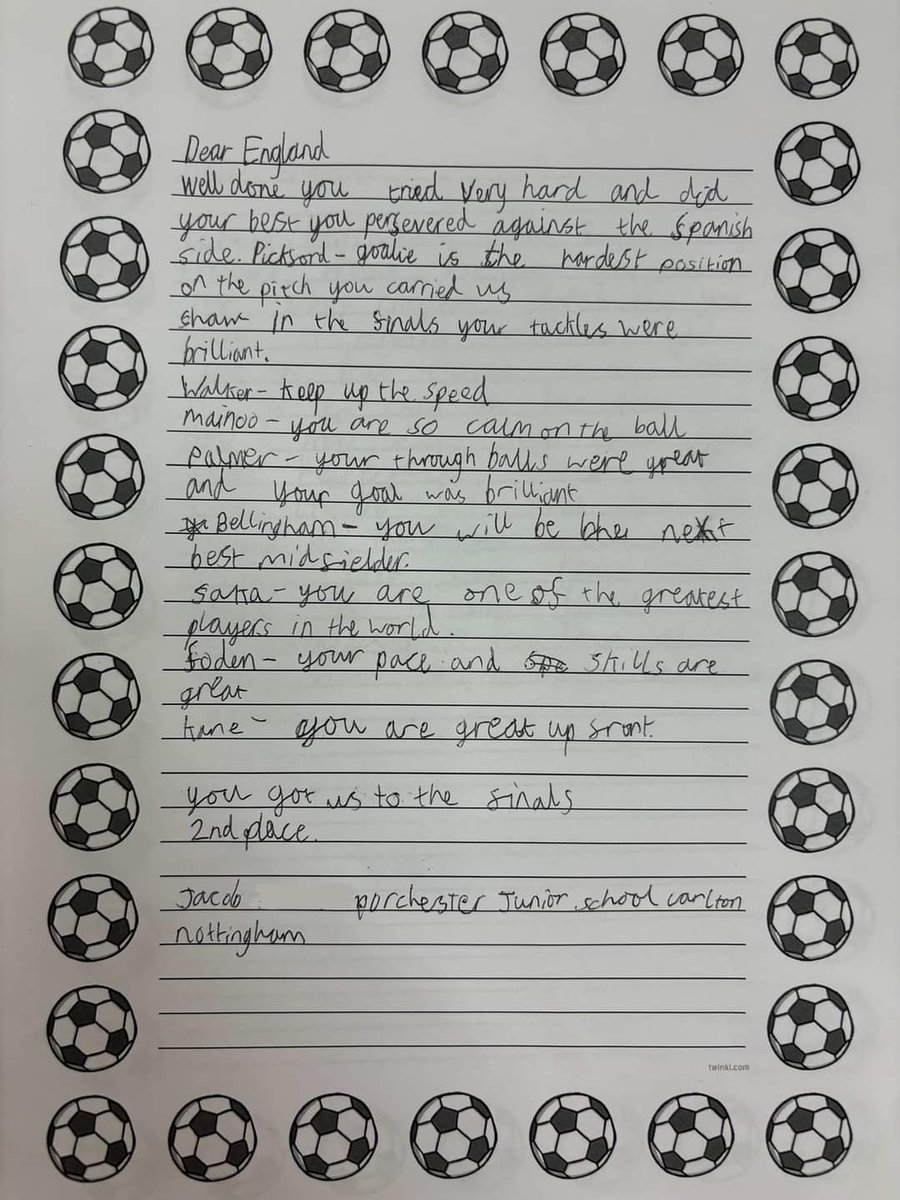 Dear England
Well done you tried very hard and did
your best you persevered against the Spanish
side. Picksord - goalie is the hardest position
on the pitch you carried us
Shaw in the finals your tackles were
brilliant.
Walker - keep up the speed
mainoo - you are so calm on the ball
palmer - your through balls were great
and your goal was brilliant
Bellingham - you will be the next
best midfielder.
saka - you are one of the greatest
players in the world.
foden - your pace and skills are
great
kane - you are great up front.
you got us to the finals
2nd place.
Jacob porchester Junior school carlton
nottingham
twinkl.com